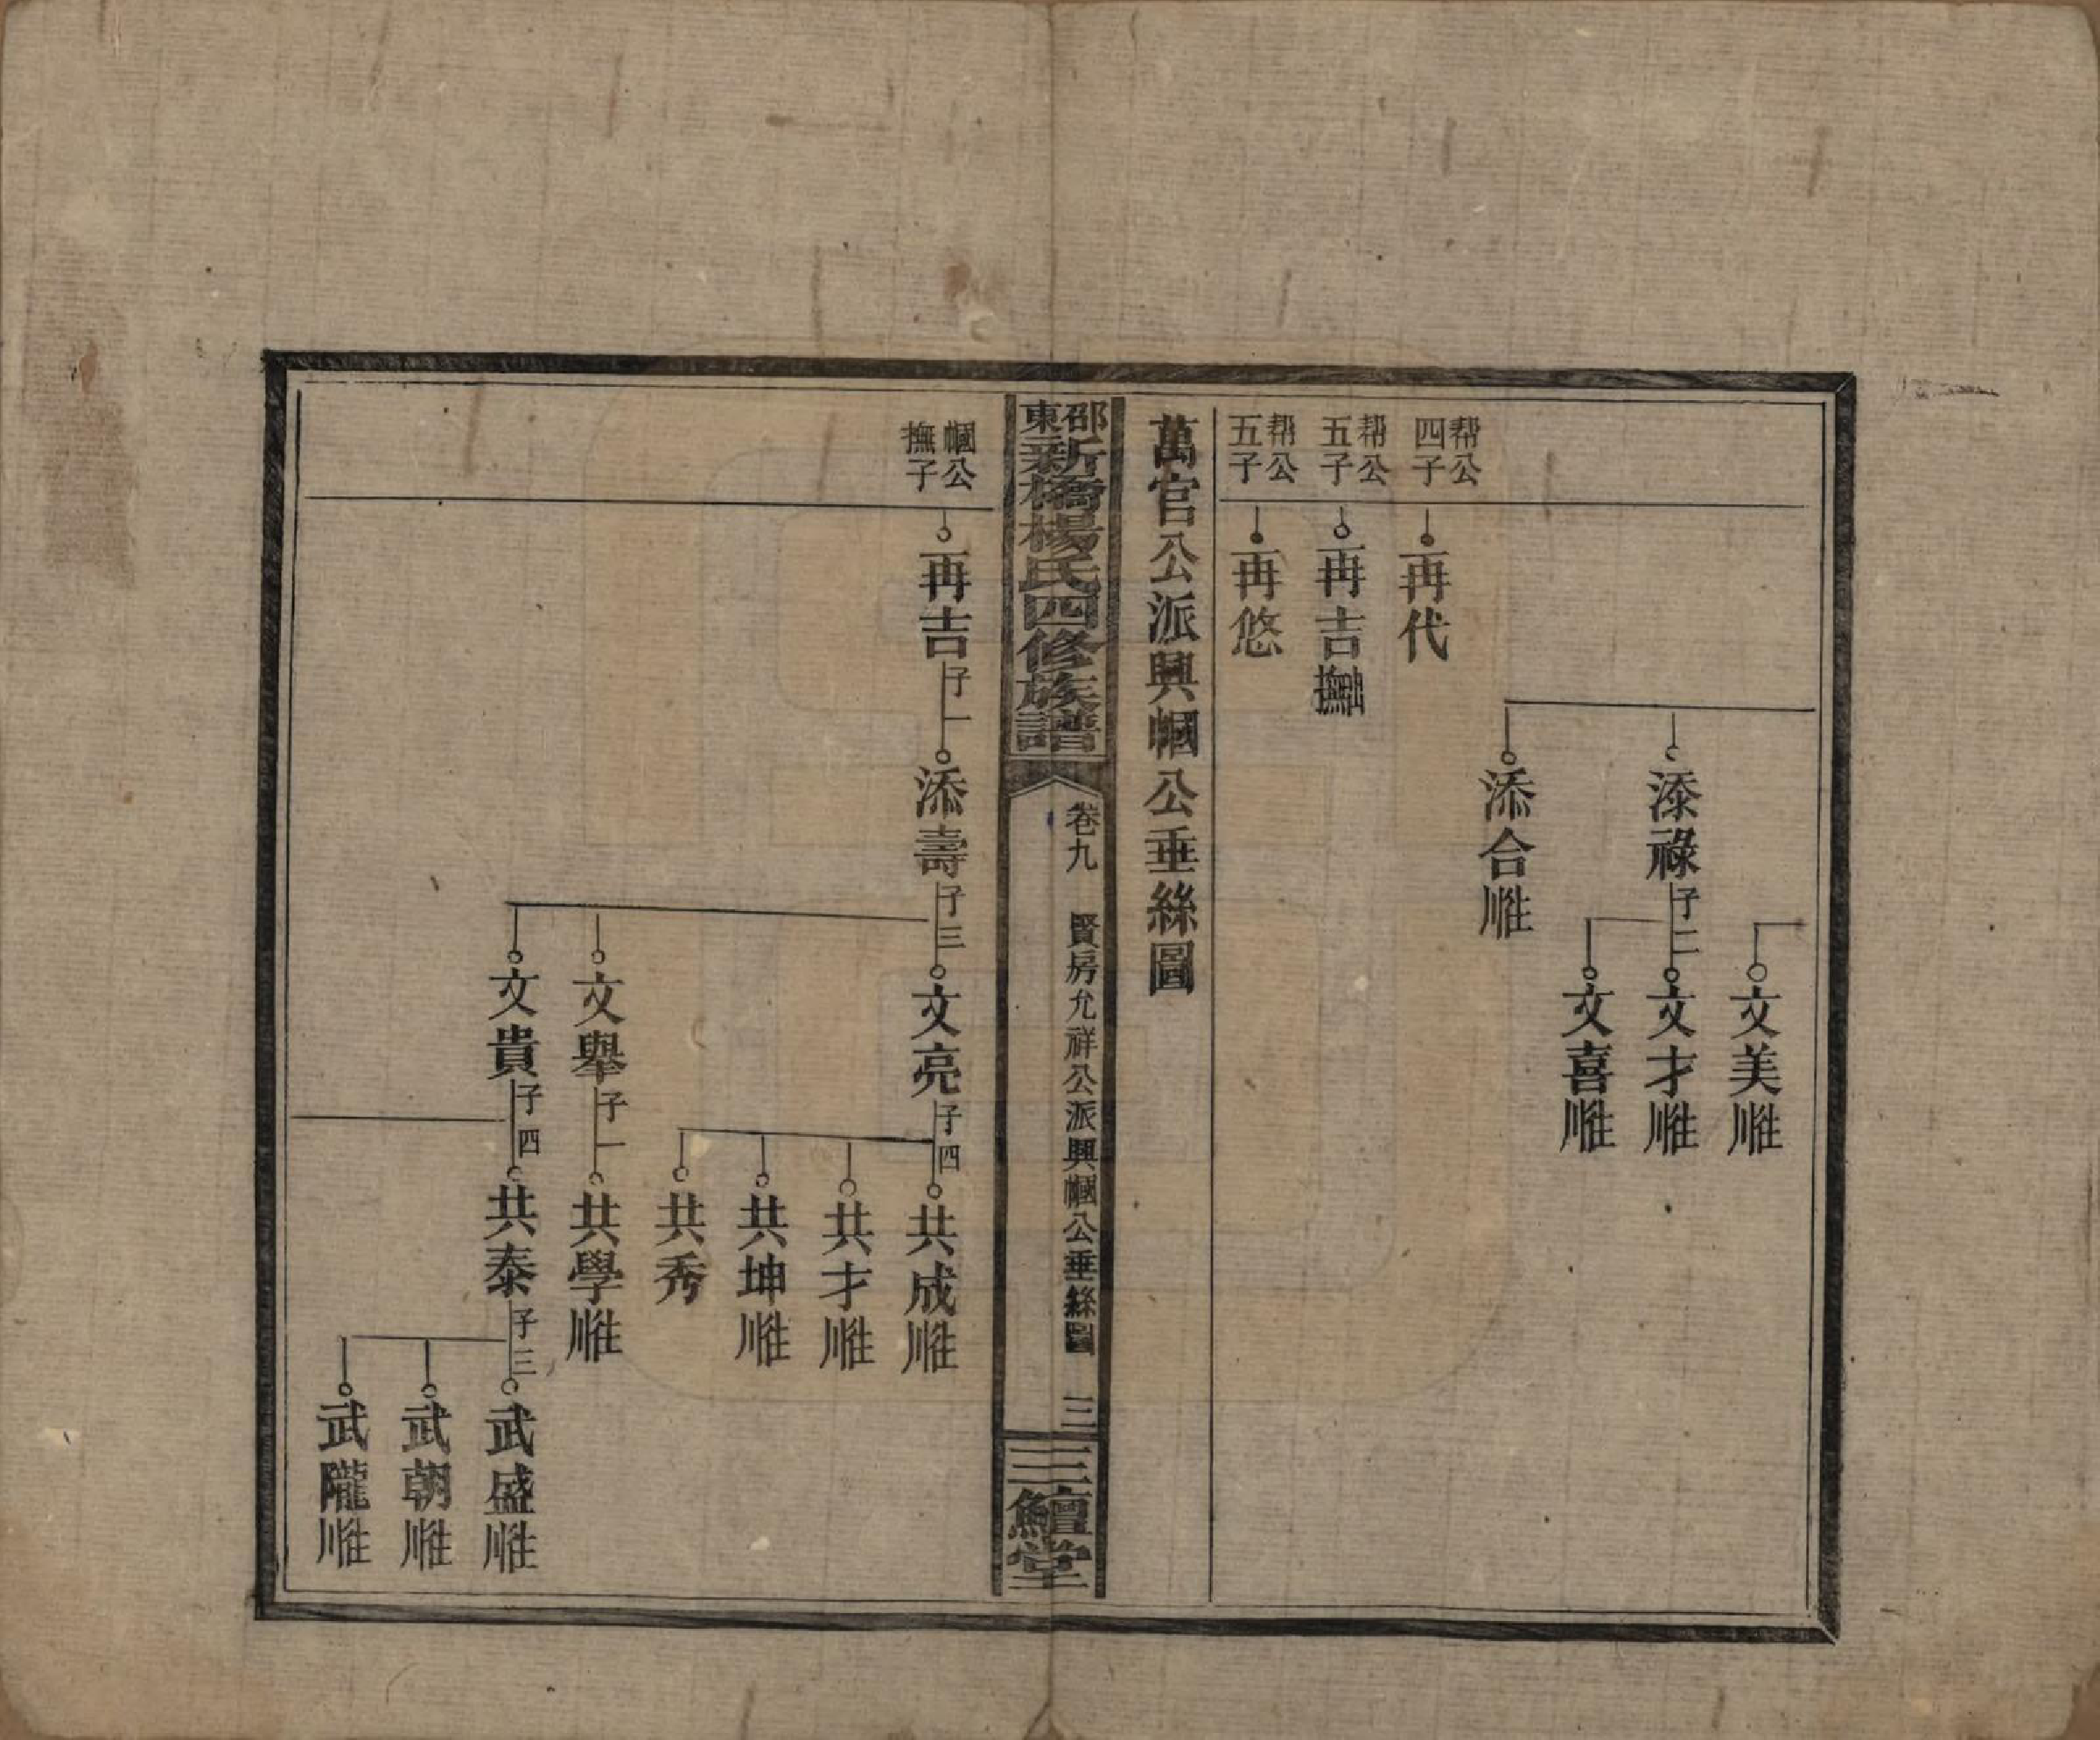 文美
添祿子二
文才
文喜
添合
幇公四子
再代
幇公五子
再吉
幇公五子
再悠
萬官公派興幗公垂絲圖
邵東新橋楊氏四修族譜
卷九 賢房允祥公派興幗公垂絲圖 三
三鱣堂
幗公撫子
再吉子一
添壽子三
文亮子四
共成
共才
共坤
共秀
文舉子一
共學
文貴子四
共泰子三
武盛
武朝
武隴